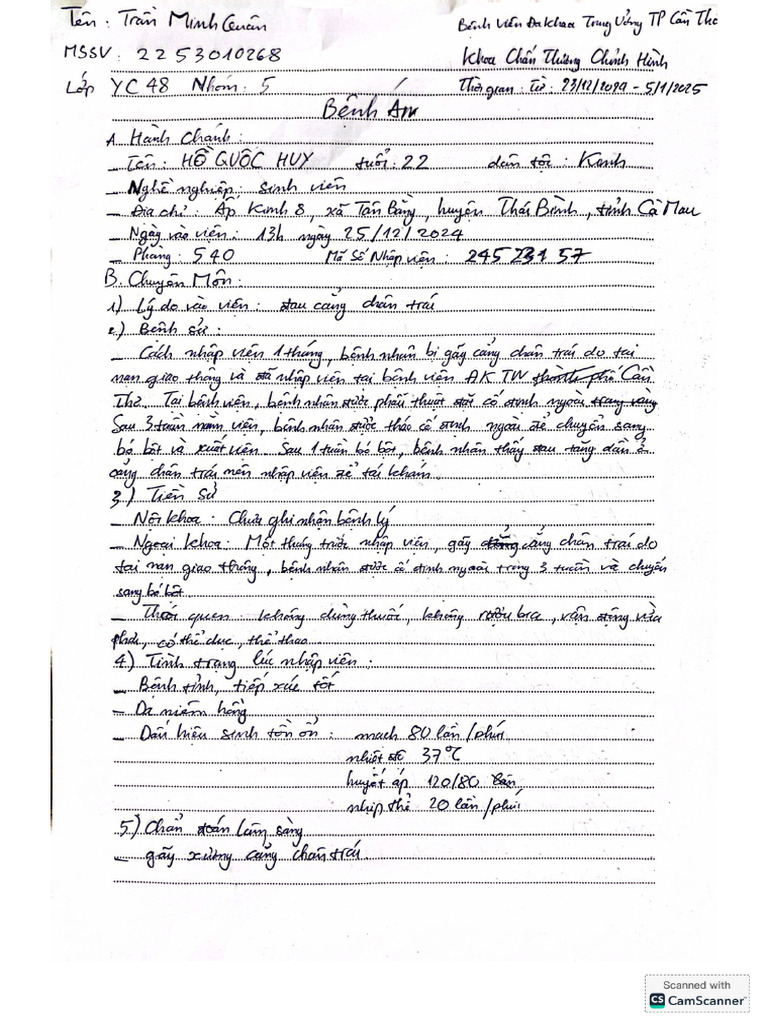 Tên : Trần Minh Quân
Bệnh Viện Đa khoa Trung Ương TP Cần Thơ
MSSV : 2253010268
Khoa Chấn Thương Chỉnh Hình
Lớp YC48 Nhóm : 5
Thời gian : Từ : 23/12/2024 - 5/1/2025
Bệnh Án
A. Hành Chánh :
_ Tên : HỒ QUỐC HUY tuổi : 22 dân tộc : Kinh
_ Nghề nghiệp : sinh viên
_ Địa chỉ : Ấp Kinh 8, xã Tân Bằng, huyện Thái Bình, tỉnh Cà Mau
_ Ngày vào viện : 13h ngày 25/12/2024
_ Phòng : 540 Mã Số Nhập viện : 24523157
B. Chuyên Môn :
1) Lý do vào viện : đau cẳng chân trái
2) Bệnh sử :
_ Cách nhập viện 1 tháng, bệnh nhân bị gãy cẳng chân trái do tai
nạn giao thông và đã nhập viện tại bệnh viện ĐK TW thành phố Cần
Thơ. Tại bệnh viện, bệnh nhân được phẫu thuật đặt cố định ngoài
Sau 3 tuần nằm viện, bệnh nhân được tháo cố định ngoài để chuyển sang
bó bột và xuất viện. Sau 1 tuần bó bột, bệnh nhân thấy đau tăng dần ở
cẳng chân trái nên nhập viện để tái khám.
3) Tiền sử
_ Nội khoa : Chưa ghi nhận bệnh lý
_ Ngoại khoa : Một tháng trước nhập viện, gãy cẳng chân trái do
tai nạn giao thông, bệnh nhân được cố định ngoài trong 3 tuần và chuyển
sang bó bột
_ Thói quen : không dùng thuốc, không rượu bia, vận động vừa
phải, có thể dục, thể thao
4) Tình trạng lúc nhập viện :
_ Bệnh tỉnh, tiếp xúc tốt
_ Da niêm hồng
_ Dấu hiệu sinh tồn ổn : mạch 80 lần/phút
nhiệt độ 37°C
huyết áp 120/80
nhịp thở 20 lần/phút
5) Chẩn đoán lâm sàng
_ gãy xương cẳng chân trái.
Scanned with
CS CamScanner